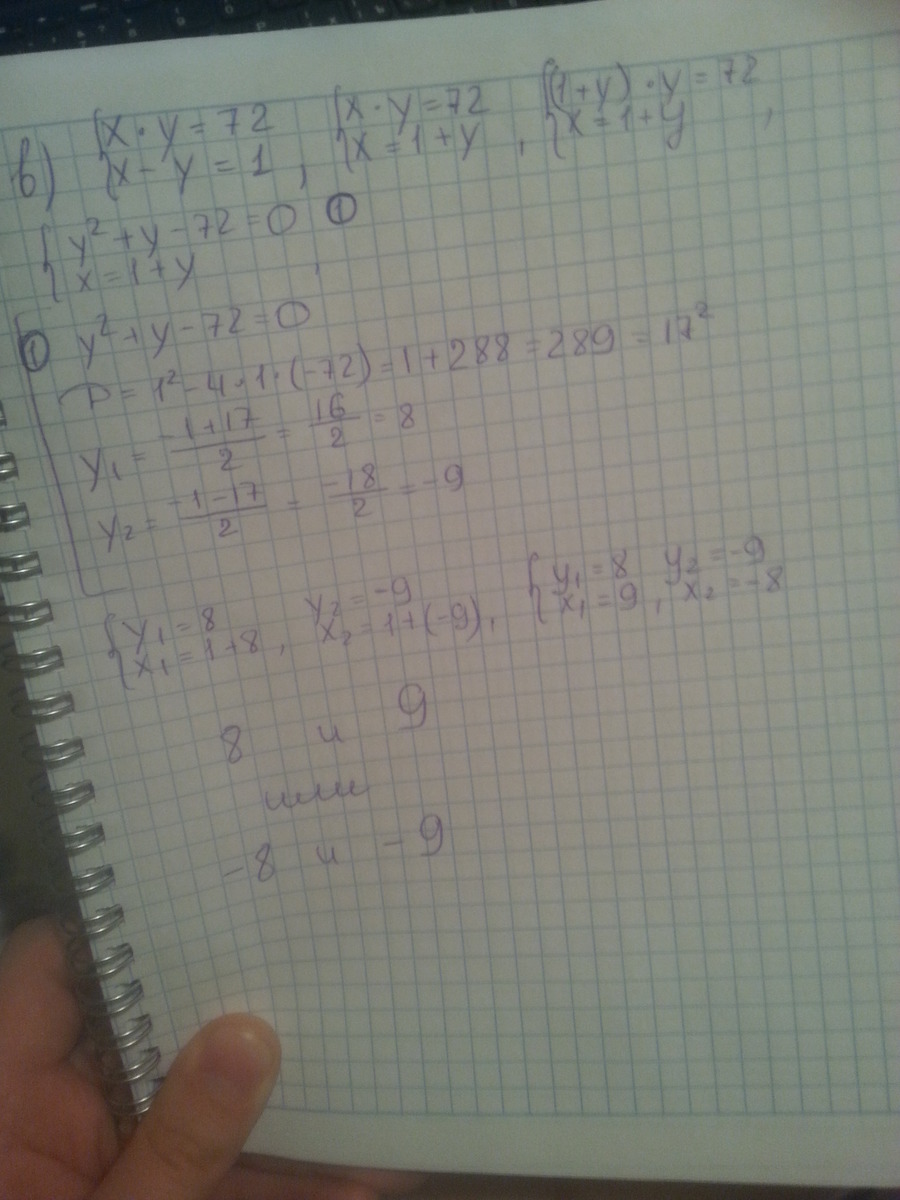 в) {x · y = 72 {x · y = 72 {(1+y) · y = 72
{x - y = 1 , {x = 1 + y , {x = 1 + y ,
{y² + y - 72 = 0 ①
{x = 1 + y ,
① y² + y - 72 = 0
D = 1² - 4 · 1 · (-72) = 1 + 288 = 289 = 17²
y₁ = (-1+17)/2 = 16/2 = 8
y₂ = (-1-17)/2 = -18/2 = -9
{y₁ = 8 y₂ = -9 {y₁ = 8 y₂ = -9
{x₁ = 1+8 , x₂ = 1+(-9) , {x₁ = 9 , x₂ = -8
8 и 9
или
-8 и -9